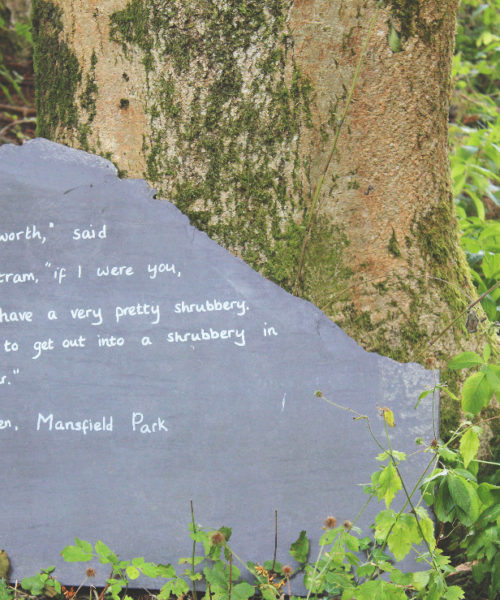 worth," said
tram, "if I were you,
have a very pretty shrubbery.
to get out into a shrubbery in
r."
en, Mansfield Park